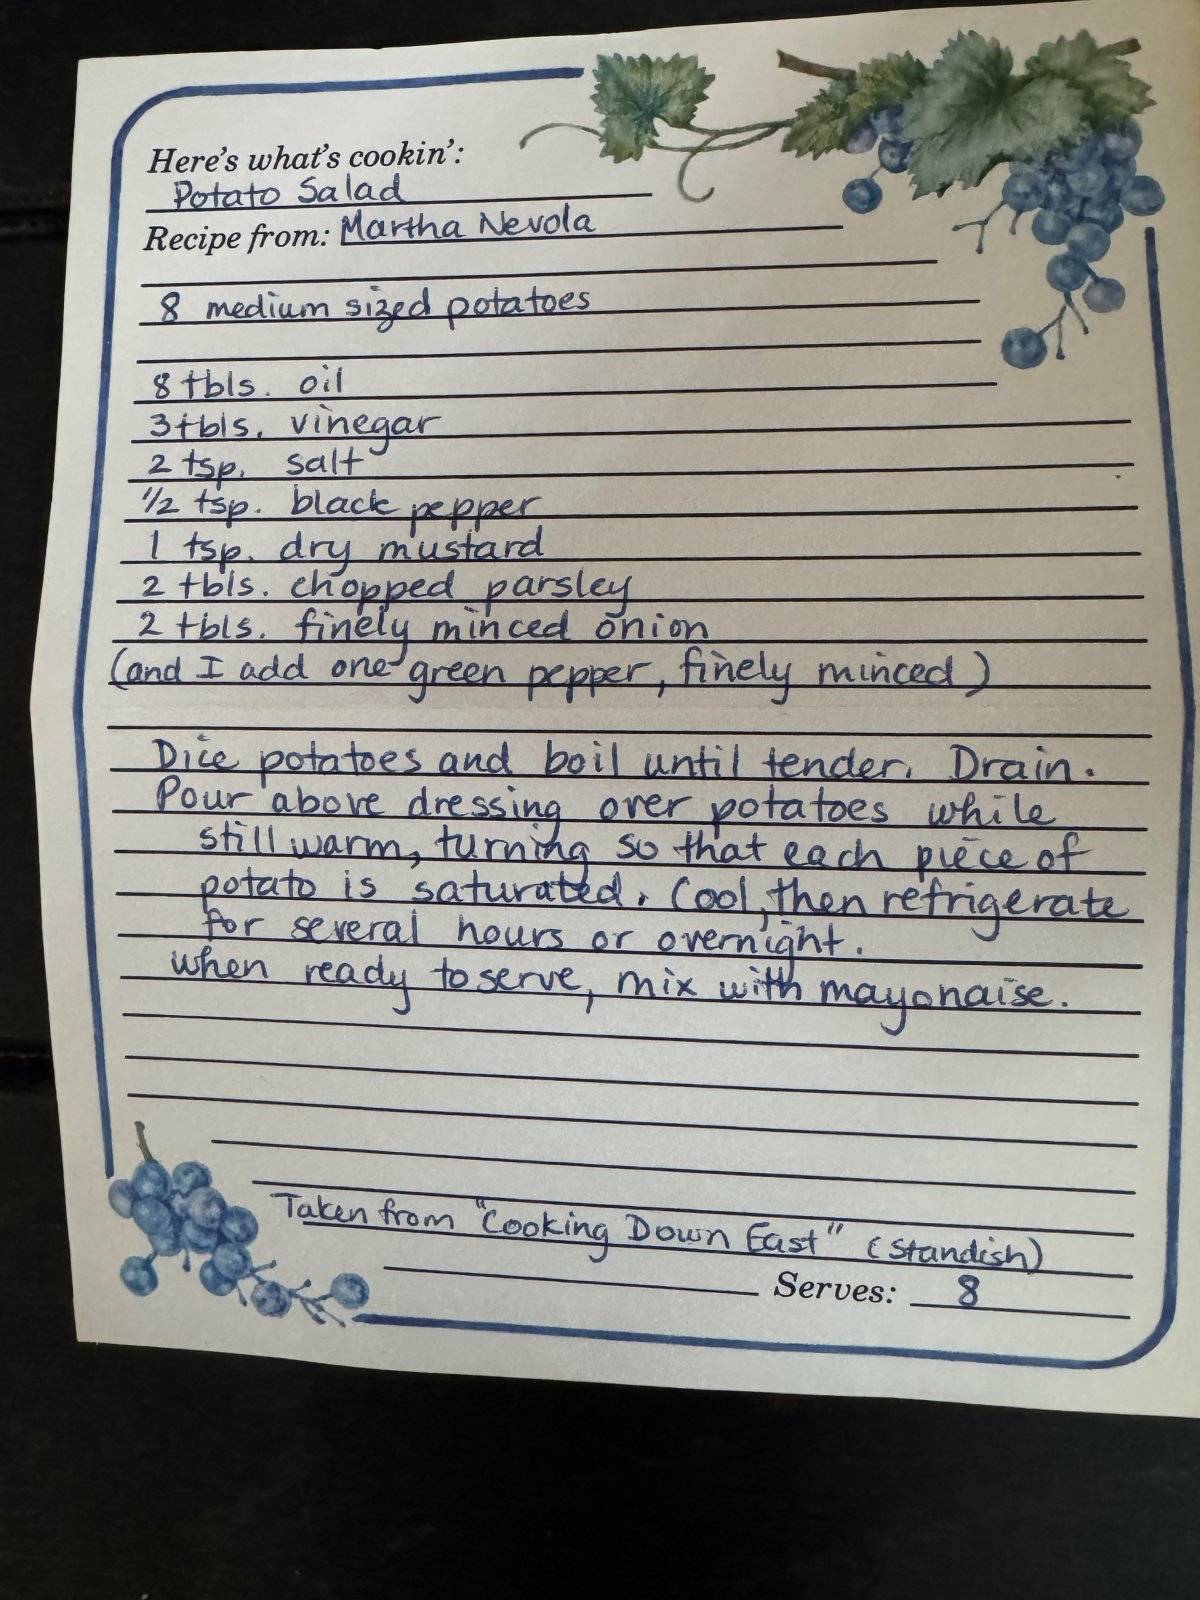 Here's what's cookin':
Potato Salad
Recipe from: Martha Nevola
8 medium sized potatoes
8 tbls. oil
3 tbls. vinegar
2 tsp. salt
1/2 tsp. black pepper
1 tsp. dry mustard
2 tbls. chopped parsley
2 tbls. finely minced onion
(and I add one green pepper, finely minced)
Dice potatoes and boil until tender. Drain.
Pour above dressing over potatoes while
still warm, turning so that each piece of
potato is saturated. Cool, then refrigerate
for several hours or overnight.
when ready to serve, mix with mayonaise.
Taken from "Cooking Down East" (Standish)
Serves: 8